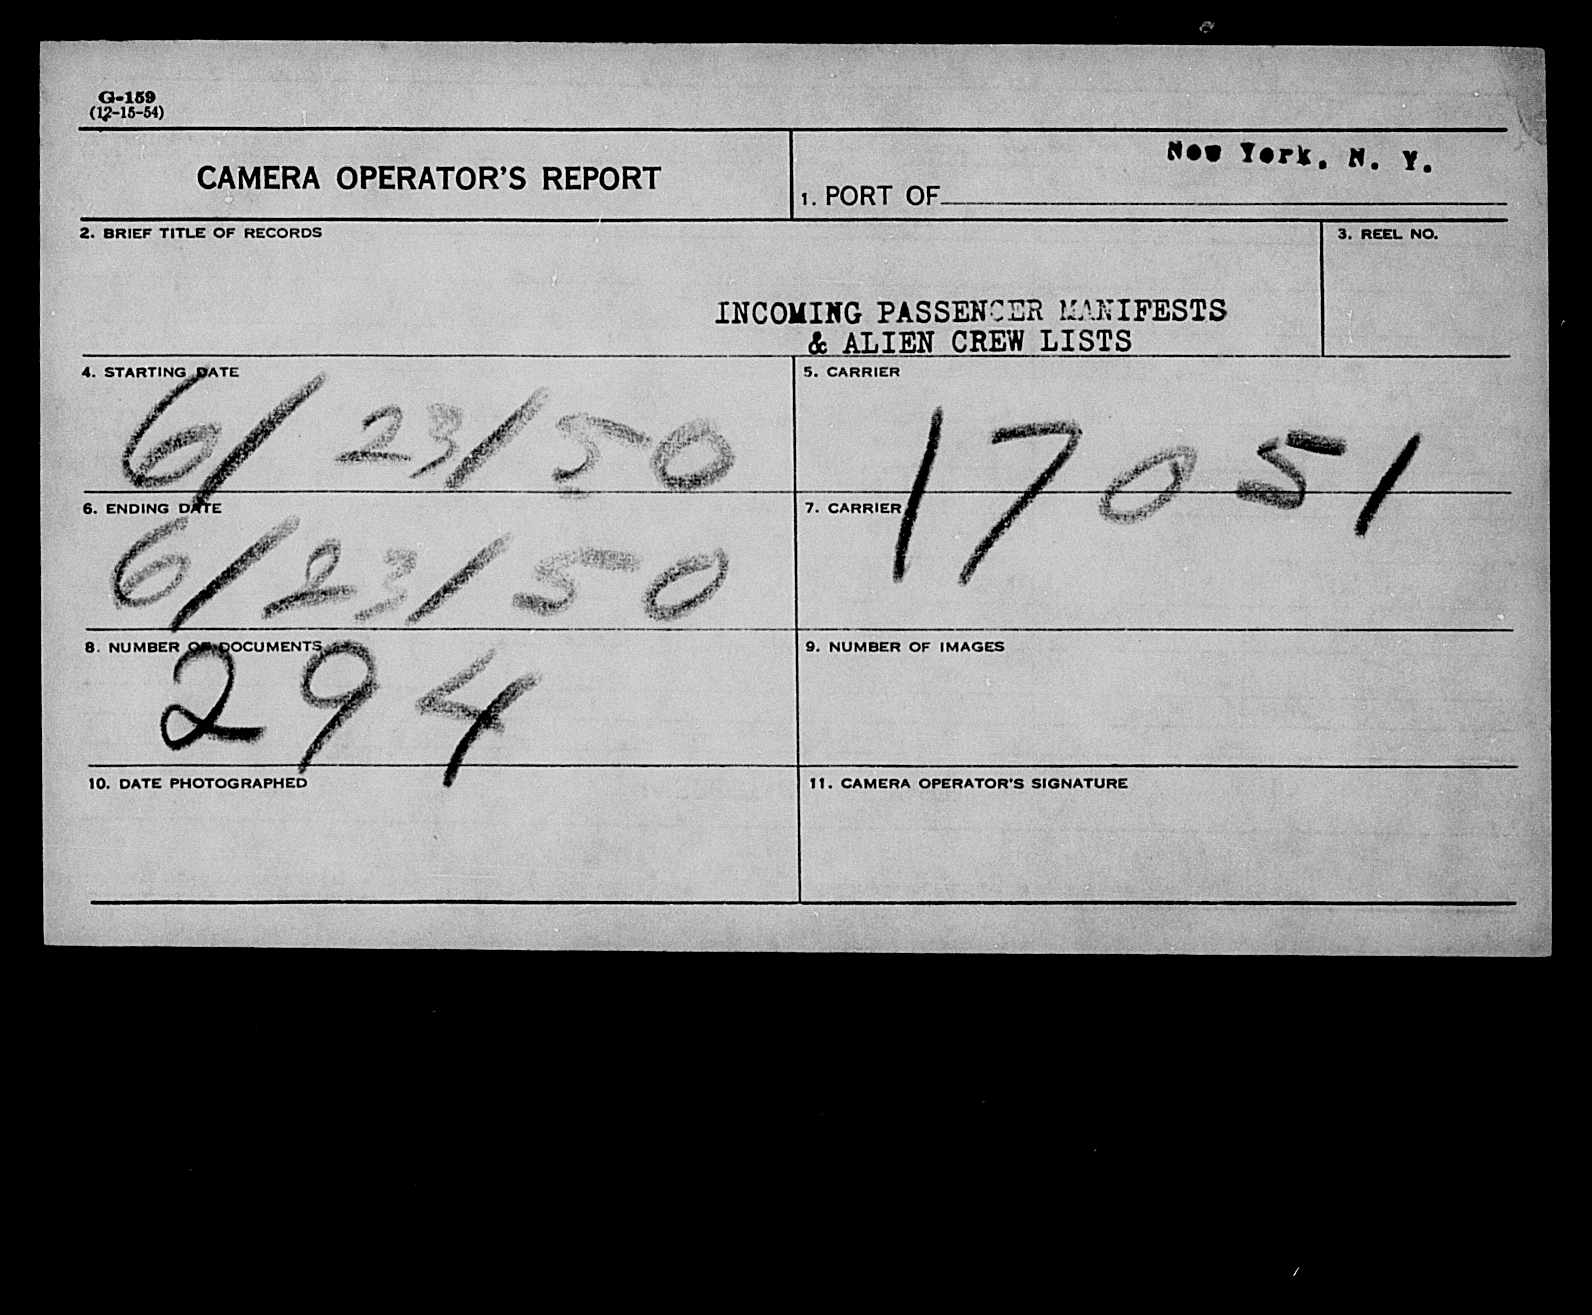 G-159
(12-15-54)
CAMERA OPERATOR'S REPORT
New York, N. Y.
1. PORT OF
2. BRIEF TITLE OF RECORDS
3. REEL NO.
INCOMING PASSENGER MANIFESTS
& ALIEN CREW LISTS
4. STARTING DATE
6/23/50
5. CARRIER
17051
6. ENDING DATE
6/23/50
7. CARRIER
8. NUMBER OF DOCUMENTS
294
9. NUMBER OF IMAGES
10. DATE PHOTOGRAPHED
11. CAMERA OPERATOR'S SIGNATURE